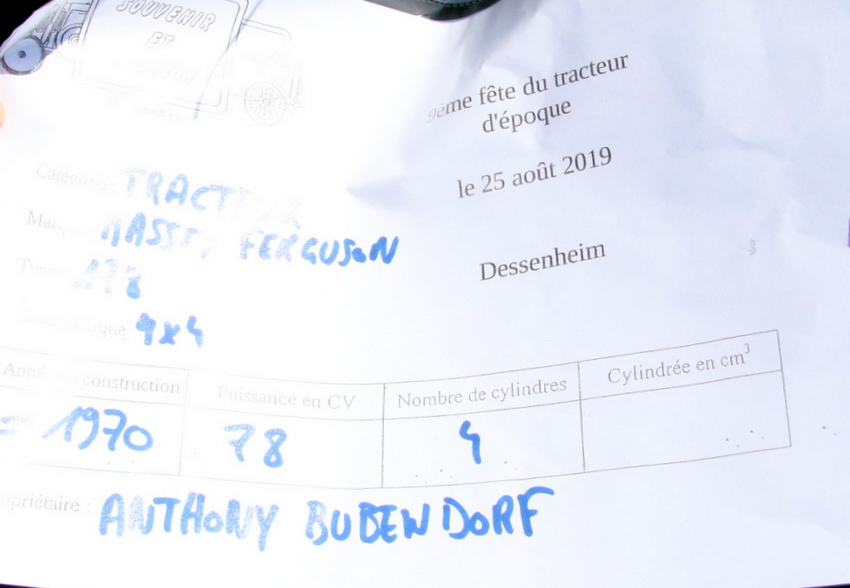 SOUVENIR
ET
9ème fête du tracteur
d'époque
le 25 août 2019
Dessenheim
Catégorie : TRACTEUR
Marque MASSEY FERGUSON
Type 178
4x4
Année de construction Puissance en CV Nombre de cylindres Cylindrée en cm³
1970 78 4
Propriétaire : ANTHONY BUBENDORF